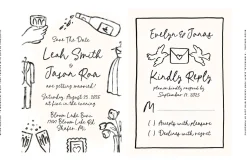 Save The Date
Leah Smith
&
Jason Roa
are getting married!
Saturday, August 25, 2026
at five in the evening
Bloom Lake Barn
Shafer, Mn
Evelyn & Jonas
Kindly Reply
please kindly respond by
September 17, 2025
M
( ) Accepts with pleasure
( ) Declines with regret